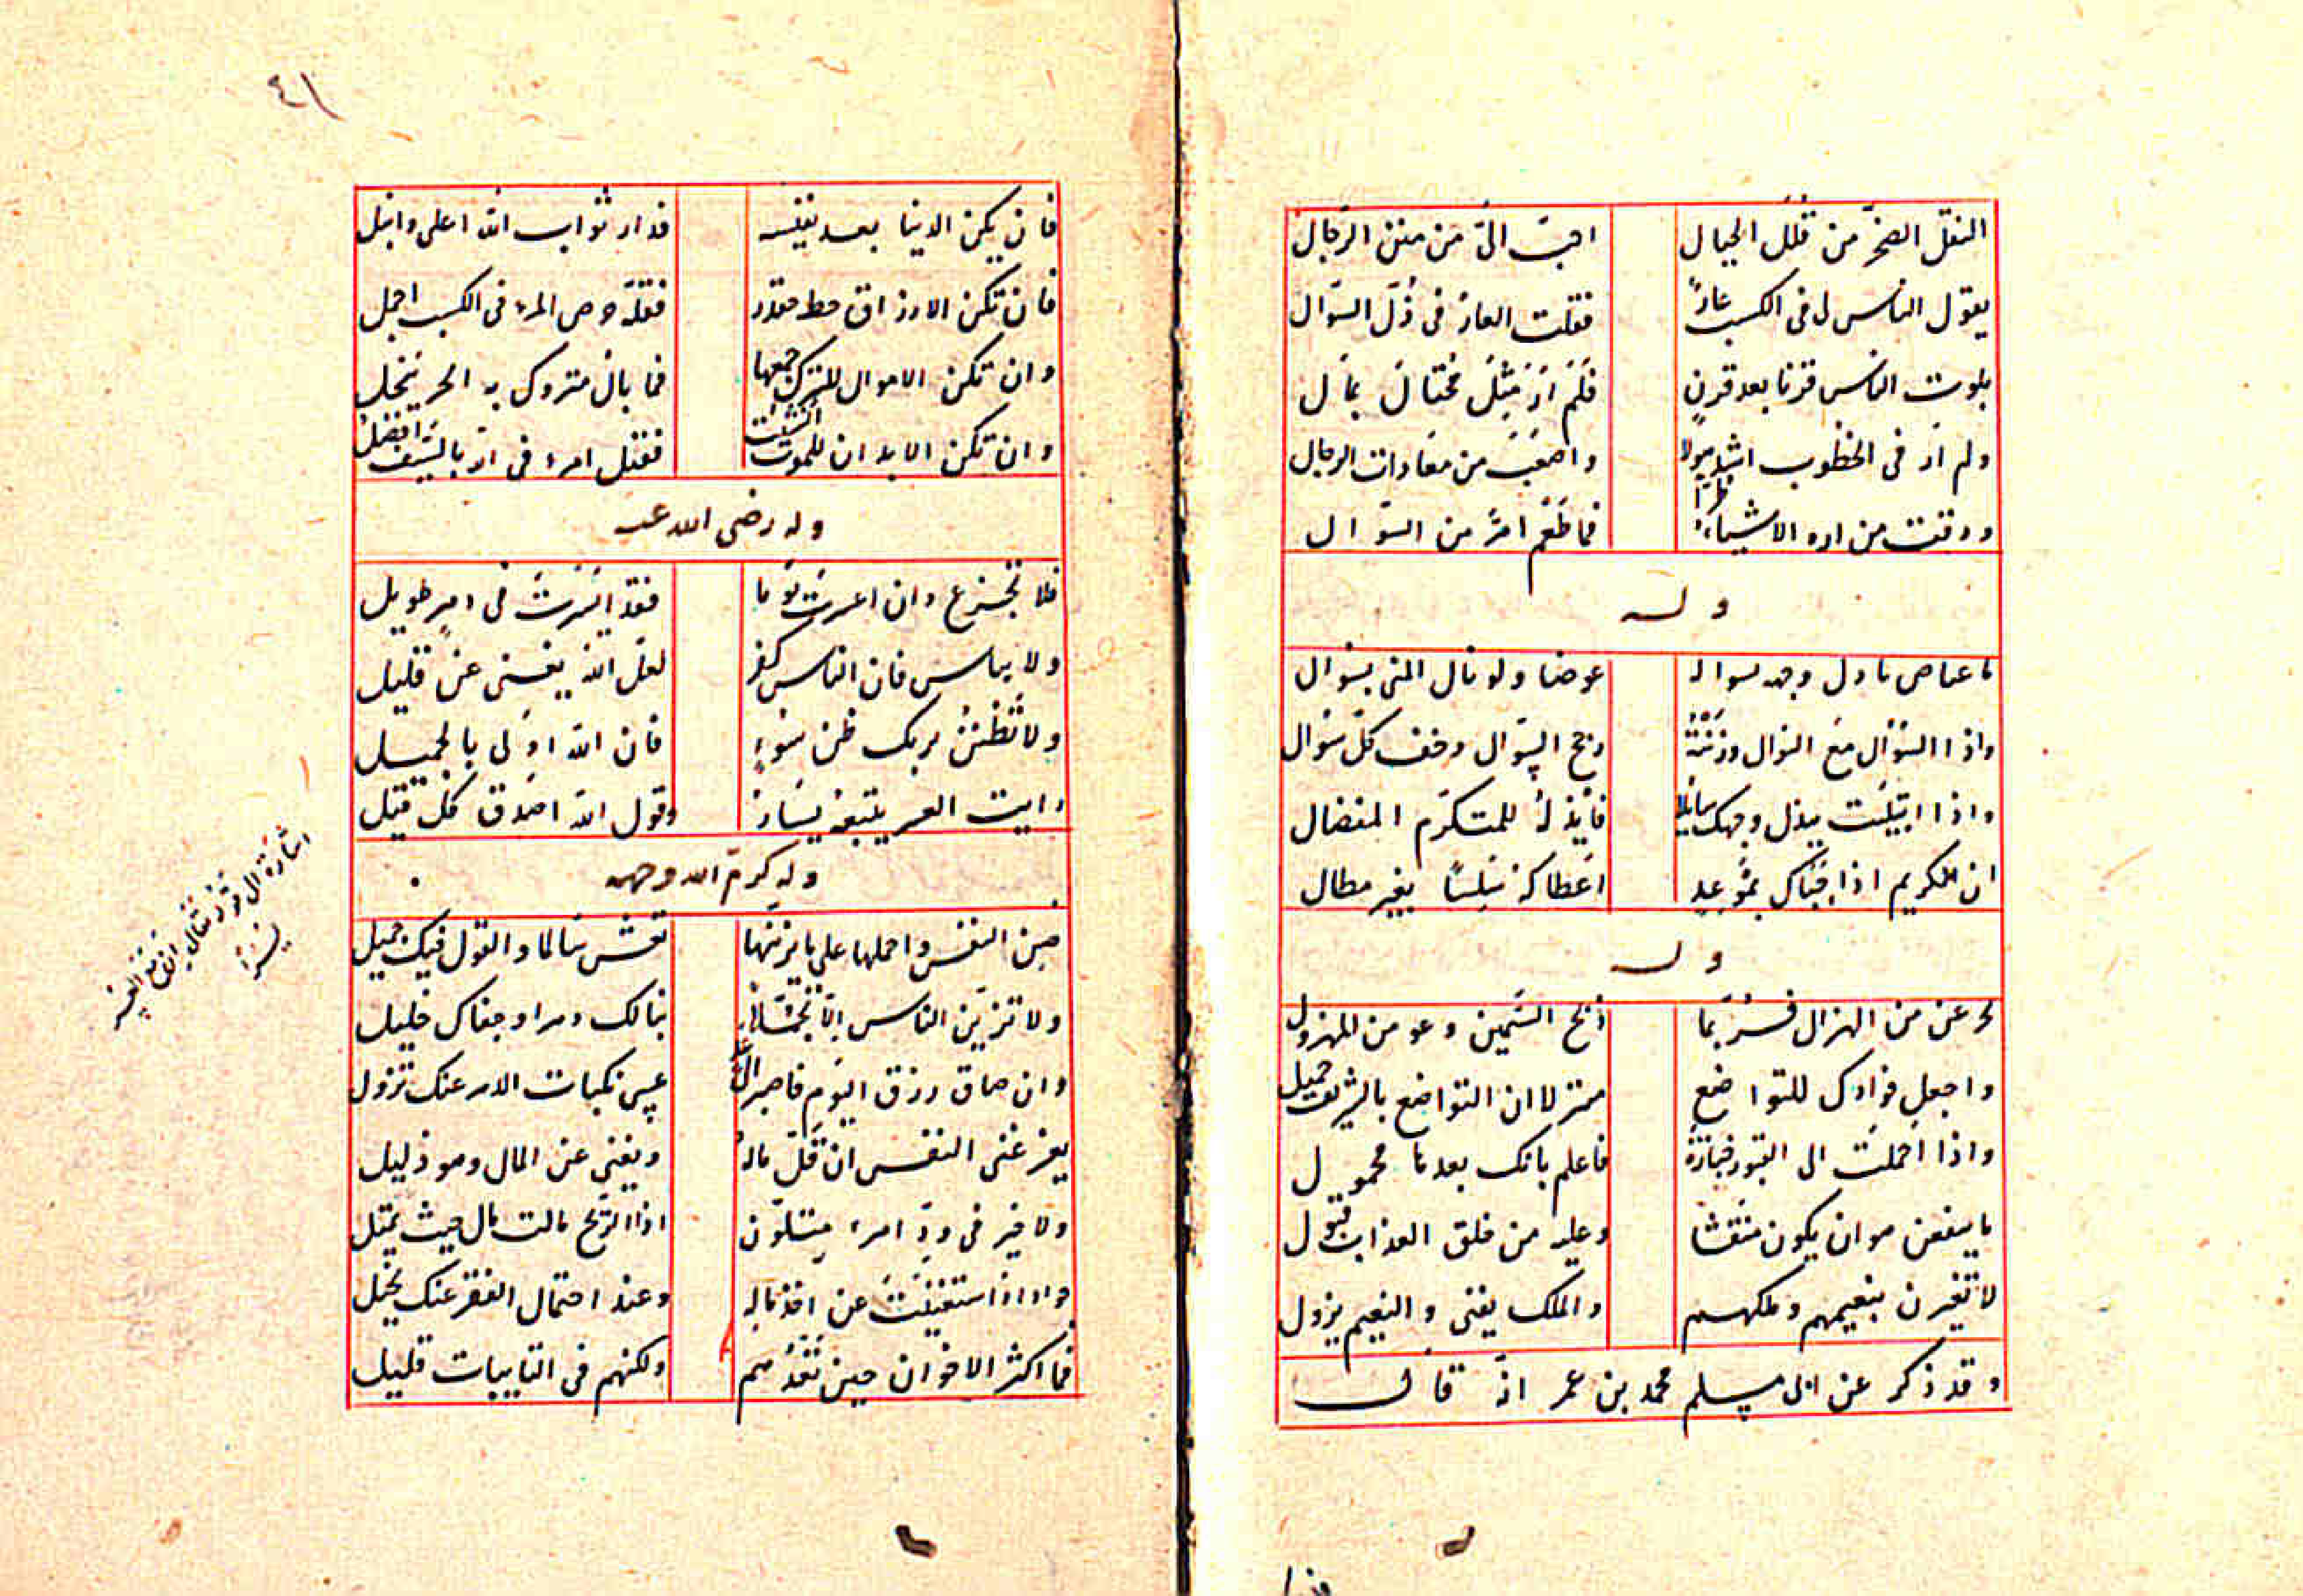 لنقل الصخر من قلل الجبال احبّ الىّ من منن الرجال
يقول الناس لى فى الكسب عارٌ فقلت العار فى ذلّ السوال
بلوت الناس قرنا بعد قرنٍ فلم ار مثل مختال بمال
ولم ار فى الخطوب اشد هولا واصعب من معادات الرجال
وذقت مرارة الاشياء طرّا فما طعم امرّ من السوال
وله
ما اعتاض باذل وجهه بسواله عوضا ولو نال المنى بسوال
واذا السؤال مع النوال وزنته رجح السوال وخف كل نوال
واذا ابتليت ببذل وجهك سائلا فابذله للمتكرّم المفضال
ان الكريم اذا حباك بموعد اعطاكه سلسًا بغير مطال
وله
لا تجزعن من الهزال فربما ذبح السمين وعو من المهزول
واجعل فوادك للتواضع منزلا ان التواضع بالشريف جميل
واذا حملت الى القبور جنازة فاعلم بانك بعدها محمول
وعليه من خلق العذاب
لا تغترن بنعيمهم وملكهم والملك يفنى والنعيم يزول
وقد ذكر عن ابى مسلم محمد بن عمر انه قال
٤١
فان يكن الدنيا بعد نفيسه فدار ثواب الله اعلى وانبل
فان تكن الارزاق حظ مقدر فقلّة حرص المرء فى الكسب اجمل
وان تكن الاموال للترك جمعها فما بال متروك به الحر يبخل
وان تكن الابدان للموت انشئت فقتل امرء فى الله بالسيف افضل
وله رضى الله عنه
فلا تجزع وان اعسرت يوما فقد ايسرت فى امر طويل
ولا تياس فان الياس كفر لعل الله يغنى عن قليل
ولا تظنن بربك ظن سوءٍ فان الله اولى بالجميل
رايت العسر يتبعه يسار وقول الله اصدق كل قيل
وله كرّم الله وجهه
صن النفس واحملها على ما يزينها تعش سالما والقول فيك جميل
ولا ترين الناس الا تجملا نبا بك دهر او جفاك خليل
وان ضاق رزق اليوم فاصبر الى غد عسى نكبات الدهر عنك تزول
يعز غنى النفس ان قل ماله ويغنى غنى المال وهو ذليل
ولا خير فى ودّ امرء متلوّن اذا الرّيح مالت مال حيث يميل
جواد اذا استغنيت عن اخذ ماله وعند احتمال الفقر عنك بخيل
فما اكثر الاخوان حين تعدّهم ولكنهم فى النايبات قليل
اشارة الى قوله تعالى ان مع العسر
يسرا